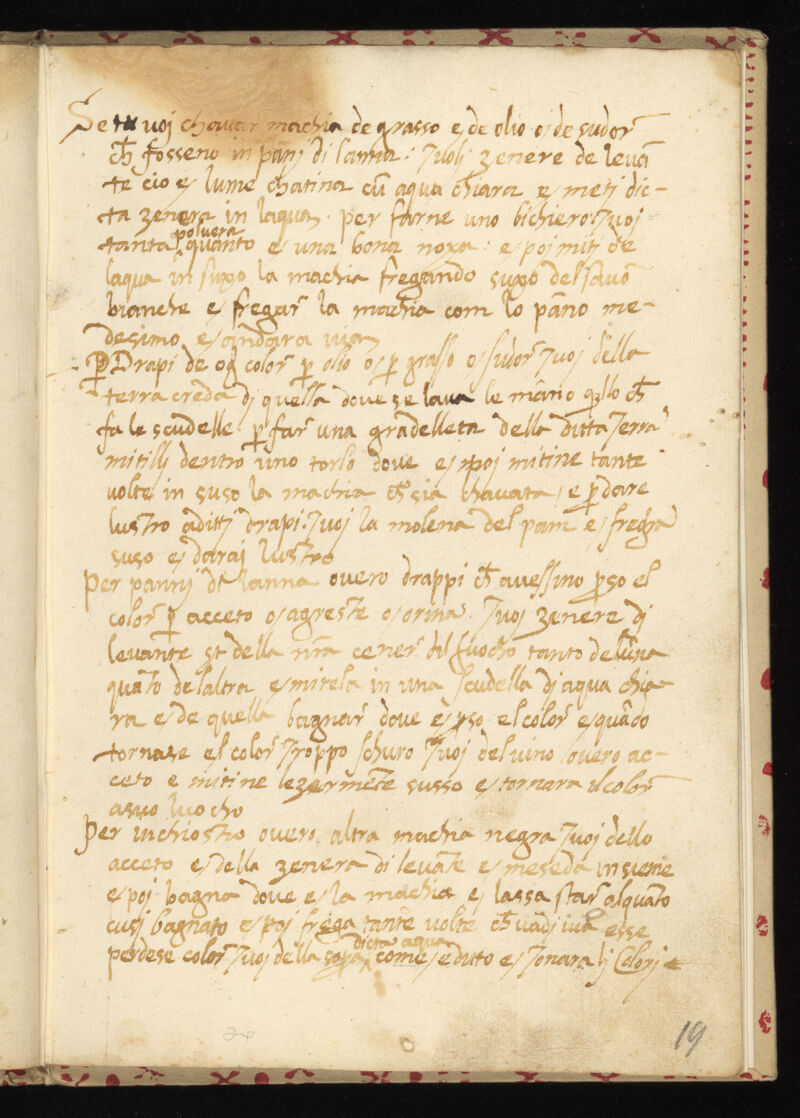 Se tu voj chavar machia de grasso e de olio o de sudor
ch̄ fosseno in pānj di lanna: Tuolj zenere de levā
te cio e lume chatina cū aqua chiara e metj dic-
ta zenera in laqua per farne uno bichiero: Tuoj
tanta polvera quanto e una bona noxa: e poj miti de
laqua in suxo la machia fregando suxo del savō
bianche e fregar la machia com lo pāno me-
desimo e andara via
P̄ Drapi de og color p̄ olio o p̄ grasso o sudor Tuoj della
terra creda dj quella dove se lava le māno q̄llo ch̄
fa le scudelle p̄ far una gradelleta della ditta Terra
mitilj dentro uno torlo dove e poj mitine tante
volte in suso la machia ch̄ sia chavata, e p̄ dare
lustro a dittj drapi: Tuoj la molena del pane e frega
suso e daraj lustro
Per pannj di lanna overo drappi ch̄ avessino p̄so el
color p̄ acceto o agreste o orina. Tuoj zenere dj
levante et della nr̄a cener del fuocho tanto de luna
quāto del altra e mitela in una scudella dj aqua chia-
ra e de quella bagnar dove e p̄so el color e quādo
tornase el color Troppo schuro Tuoj del vino overo ac-
ceto e mitine lezermēte susso e tornara il color
a suo luocho
Per inchiostro overo altra machia negra Tuoj dello
acceto e della zenera di levāte e meseda insieme
e poj bagna dove e la machia e lassa star alquāto
cusj bagnato e poj frega tante volte ch̄ vadj via e se
perdese color Tuoj della sopra dicta aqua come e duto e Tonara lj Colorj
19